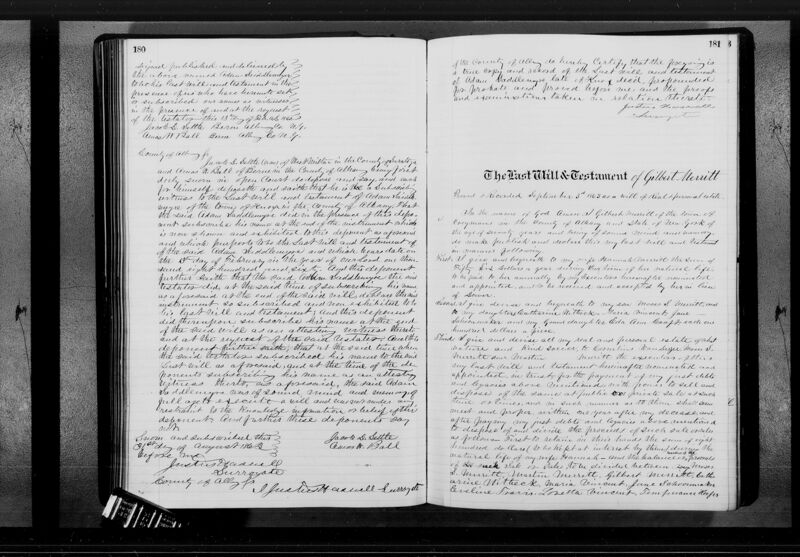 180
signed published and delivered by
the above named Adam Saddlemyre
to be his last will and testament in the
presence of us who have hereunto set
as subscribed our names as witnesses
in the presence of and at the request
of the testator this 13 day of
Jacob L. Settle Bern Albany Co N.Y.
Amos W. Ball Bern Albany Co N.Y.
County of Albany ss
Jacob L Settle of in the County of
and Amos W. Ball of Bern in the County of Albany being first
duly sworn in open Court do depose and say and each
for himself deposeth and saith that he is a Subscribing
witness to the Last Will and Testament of Adam Saddle
myre of the Town of Knox in the County of Albany That
the said Adam Saddlemyre did in the presence of this depo
nent subscribe his name at the end of the instrument which
is now shown and exhibited to this deponent as aforesaid
and which purports to be the Last will and testament of
of the said Adam Saddlemyre and which bears date on
the day of February in the year of our Lord one thou
sand eight hundred and sixty And this deponent
further saith that the said Adam Saddlemyre the
testator did at the said time of subscribing his name
as aforesaid at the end of the said will declare the said
instrument so subscribed and now exhibited to be
his last will and testament and this deponent
did thereupon subscribe his name at the end
of the said will as an attesting witness thereto
and at the request of the said testator And this
deponent further saith that at the said time when
the said testator subscribed his name to the said
Last will as aforesaid and at the time of the de
ponents subscribing his name as an attesting
witness thereto as aforesaid, the said Adam
Saddlemyre was of sound mind and memory of
full age to execute a will and was not under any
restraint to the knowledge information or belief of this
deponent And further these deponents say
not
Sworn and subscribed this Jacob L. Settle
31st day of August 1863 Amos W. Ball
before me
Justus Haswell
Surrogate
County of Albany ss
I Justus Haswell Surrogate
181
of the County of Albany do hereby Certify that the foregoing is
a true copy and record of the Last will and testament
of Adam Saddlemyre late of Knox decd propounded
for probate and proved before me, and the proofs
and examinations taken in relation thereto
Justus Haswell
Surrogate
The Last Will & Testament of Gilbert Merritt
Proved & Recorded September 3d 1863 as a will of Real & personal estate
In the name of God Amen I Gilbert Merritt of the town of
Coeymans in the County of Albany and State of New York of
the age of seventy years and being of sound mind and memory
do make publish and declare this my last will and testament
in manner following
First I give and bequeath to my wife Hannah Merritt the sum of
Fifty six dollars a year during the term of her natural life
to be paid to her annually by my Executors hereinafter nominated
and appointed and to be received and accepted by her in lieu
of Dower
Second I give devise and bequeath to my son Moses S. Merritt and
to my daughters Catharine Witbeck Maria Vincent Jane
Schoonmaker and my Grand daughter Ada Ann Caup to each one
hundred dollars a piece
Third I give and devise all my real and personal estate of what
nature and kind soever to Cornelius Vanderzee Moses S.
Merritt and Martin Merritt the executors of this
my last will and testament hereinafter nominated and
appointed in trust for the payment of my just debts
and legacies above mentioned with power to sell and
dispose of the same at public or private sale at such
time or times and in such manner as to them shall seem
meet and proper within one year after my decease and
after paying my just debts and legacies above mentioned
to dispose of and divide the proceeds of such sale or sales
as follows First to retain in their hands the sum of eight
hundred dollars to be kept at interest by them during the
natural life of my wife Hannah and the balance of proceeds
of such sale or sales to be divided between my Moses
S. Merritt, Martin Merritt, Gilbert Merritt, Cath
arine Witbeck, Maria Vincent, Jane Schoonmaker
Caroline Travis, Loretta Vincent, Temperance